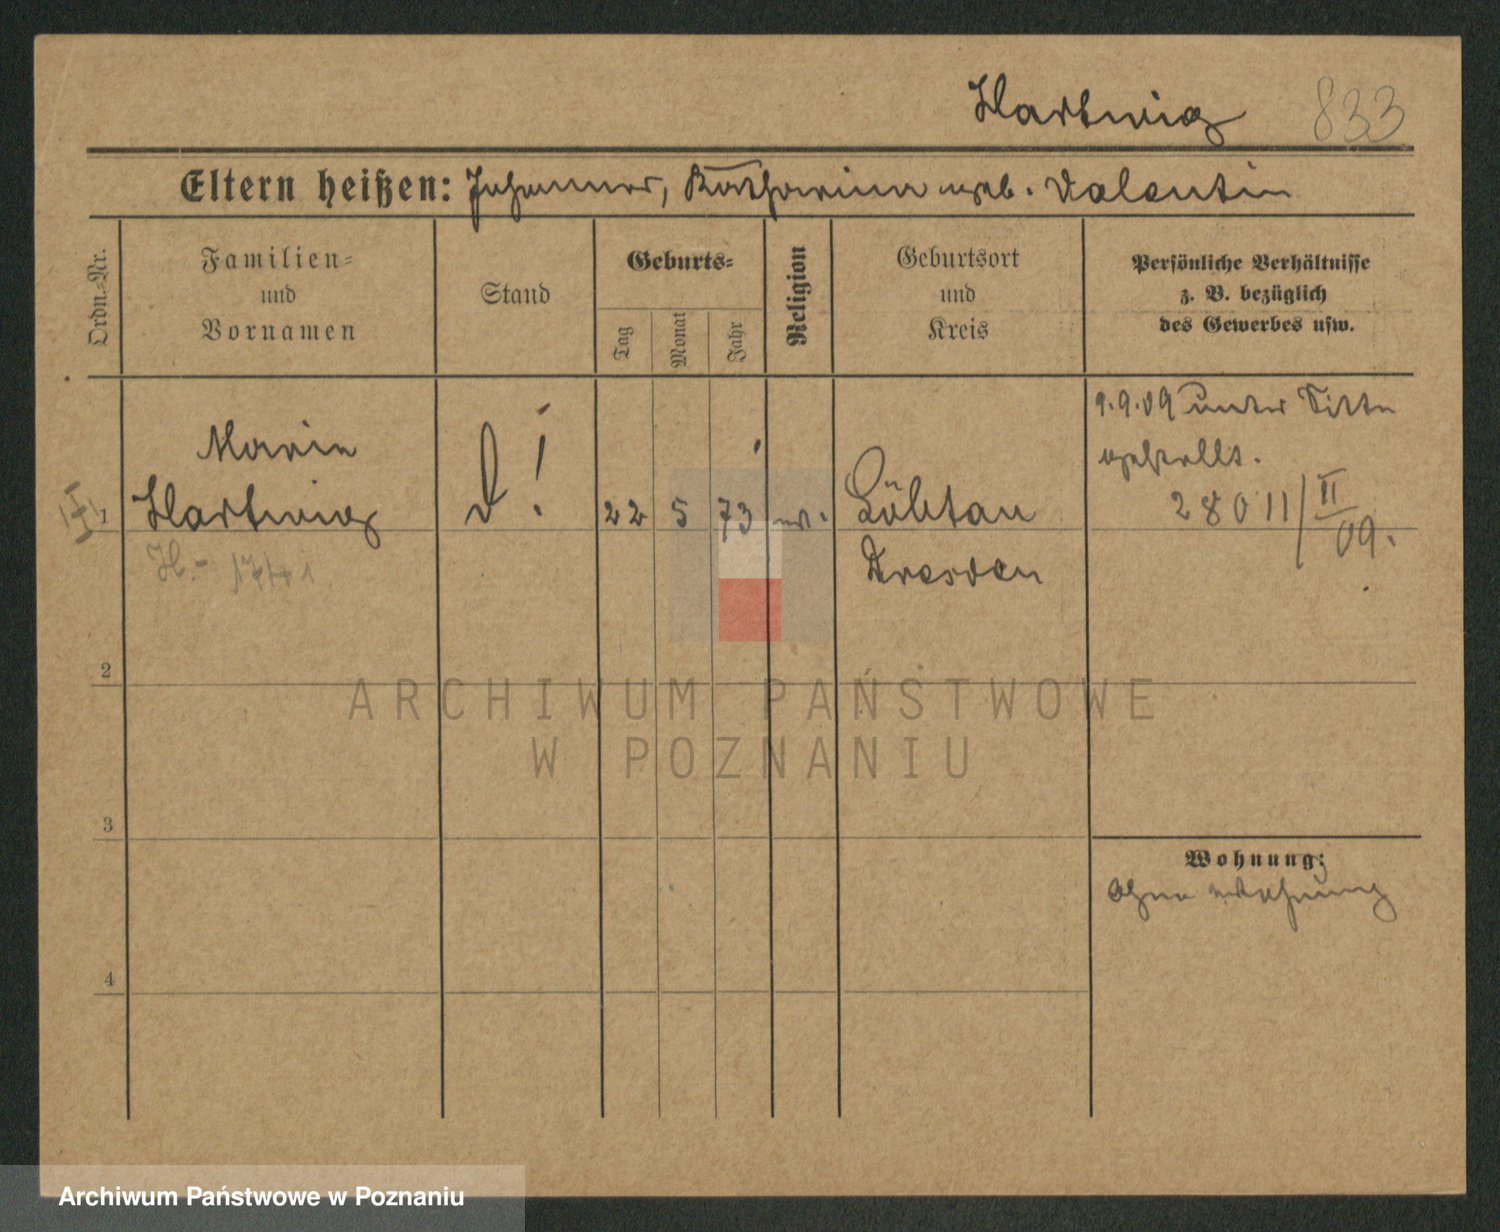 Hartwig 833
Eltern heißen: Johannes, Katharina geb. Valentin
Ordn.-Nr.
Familien-
und
Vornamen
Stand
Geburts-
Tag
Monat
Jahr
Religion
Geburtsort
und
Kreis
Persönliche Verhältnisse
z. B. bezüglich
des Gewerbes usw.
1
Marie
Hartwig
D!
22 5 73
ev.
Löbtau
Dresden
9.9.09 unter Sitte
gestellt.
28011/II
09.
2
3
4
Wohnung:
ohne Wohnung
ARCHIWUM PAŃSTWOWE
W POZNANIU
Archiwum Państwowe w Poznaniu